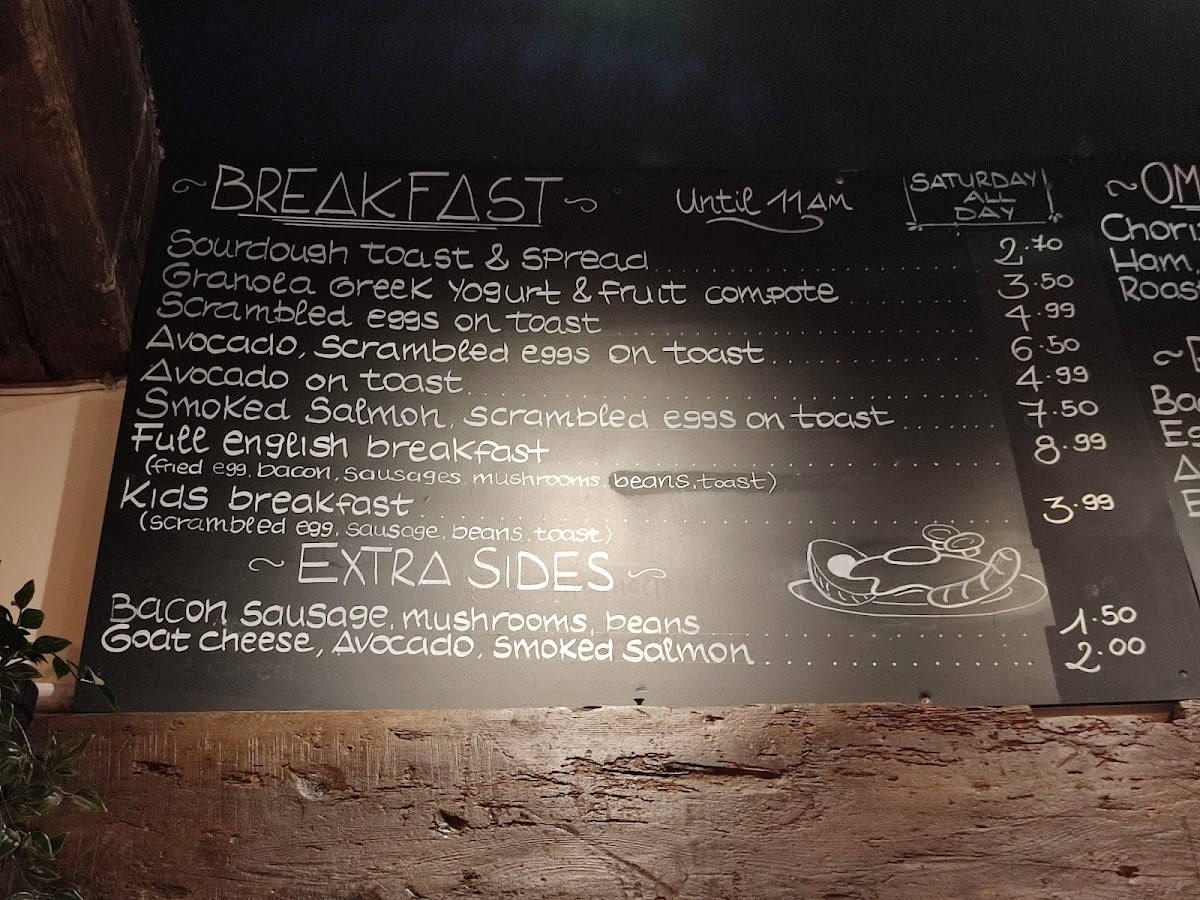 ~ BREAKFAST ~
Until 11 AM
SATURDAY
ALL
DAY
Sourdough toast & spread 2.70
Granola Greek yogurt & fruit compote 3.50
Scrambled eggs on toast 4.99
Avocado, scrambled eggs on toast 6.50
Avocado on toast 4.99
Smoked Salmon, scrambled eggs on toast 7.50
Full english breakfast 8.99
(fried egg, bacon, sausages, mushrooms, beans, toast)
Kids breakfast 3.99
(scrambled egg, sausage, beans, toast)
~ EXTRA SIDES ~
Bacon, sausage, mushrooms, beans 1.50
Goat cheese, Avocado, smoked salmon 2.00
~ OM
Chori
Ham
Roas